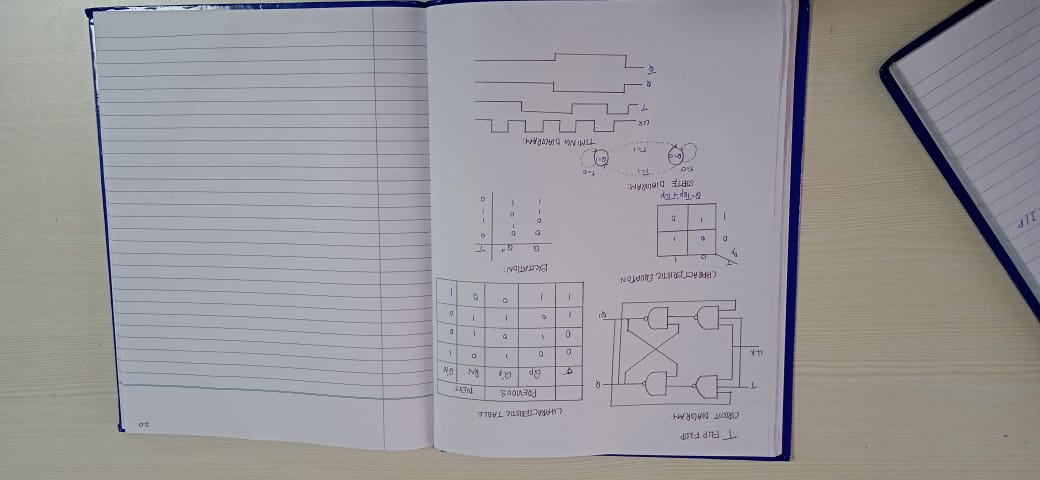 T FLIP FLOP:
CIRCUIT DIAGRAM:
T
CLK
Q
Q'
CHARACTERISTIC TABLE
PREVIOUS NEXT
T Qp Q'p QN Q'N
0 0 1 0 1
0 1 0 1 0
1 0 1 1 0
1 1 0 0 1
CHARACTERISTIC EQUATION
T
Qp
0 1
0 0 1
1 1 0
EXCITATION:
Q Q+ T
0 0 0
0 1 1
1 0 1
1 1 0
STATE DIAGRAM:
T=0
Q=0
T=1
T=1
Q=1
T=0
TIMING DIAGRAM:
CLK
T
Q
Q̅
20
I/P